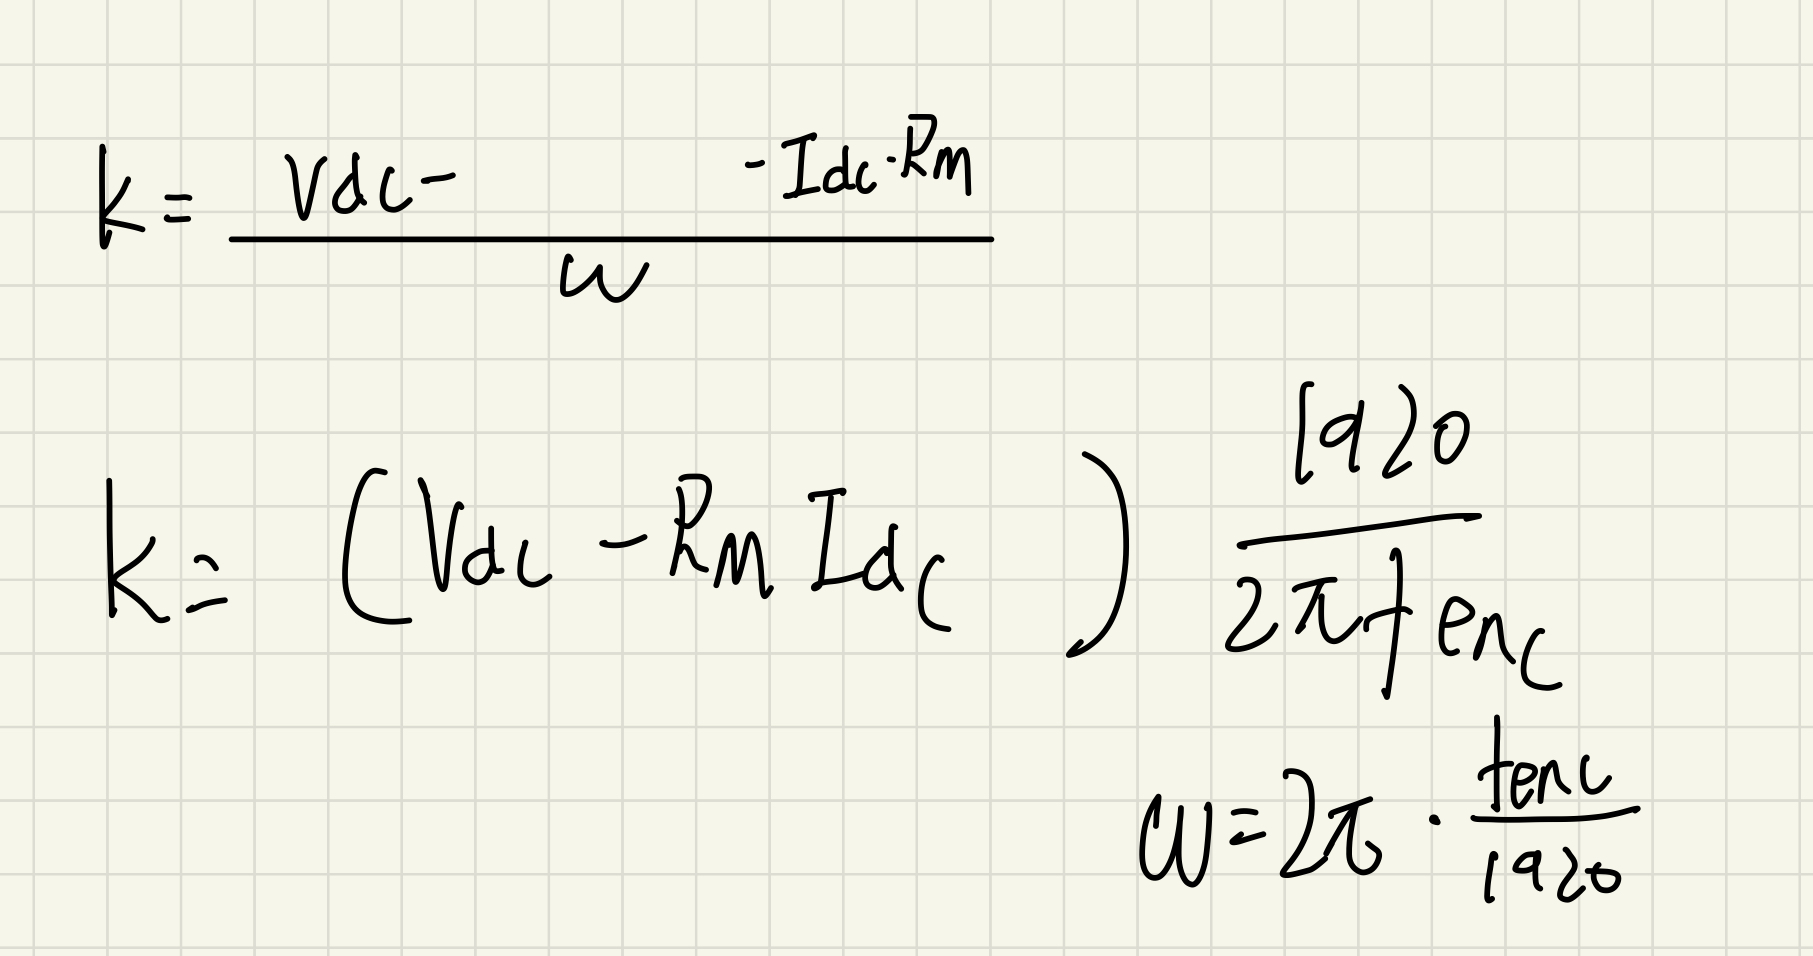 k = (Vdc - - Idc · Rm) / ω
k = (Vdc - Rm Idc) 1920 / (2π fenc)
ω = 2π · fenc / 1920